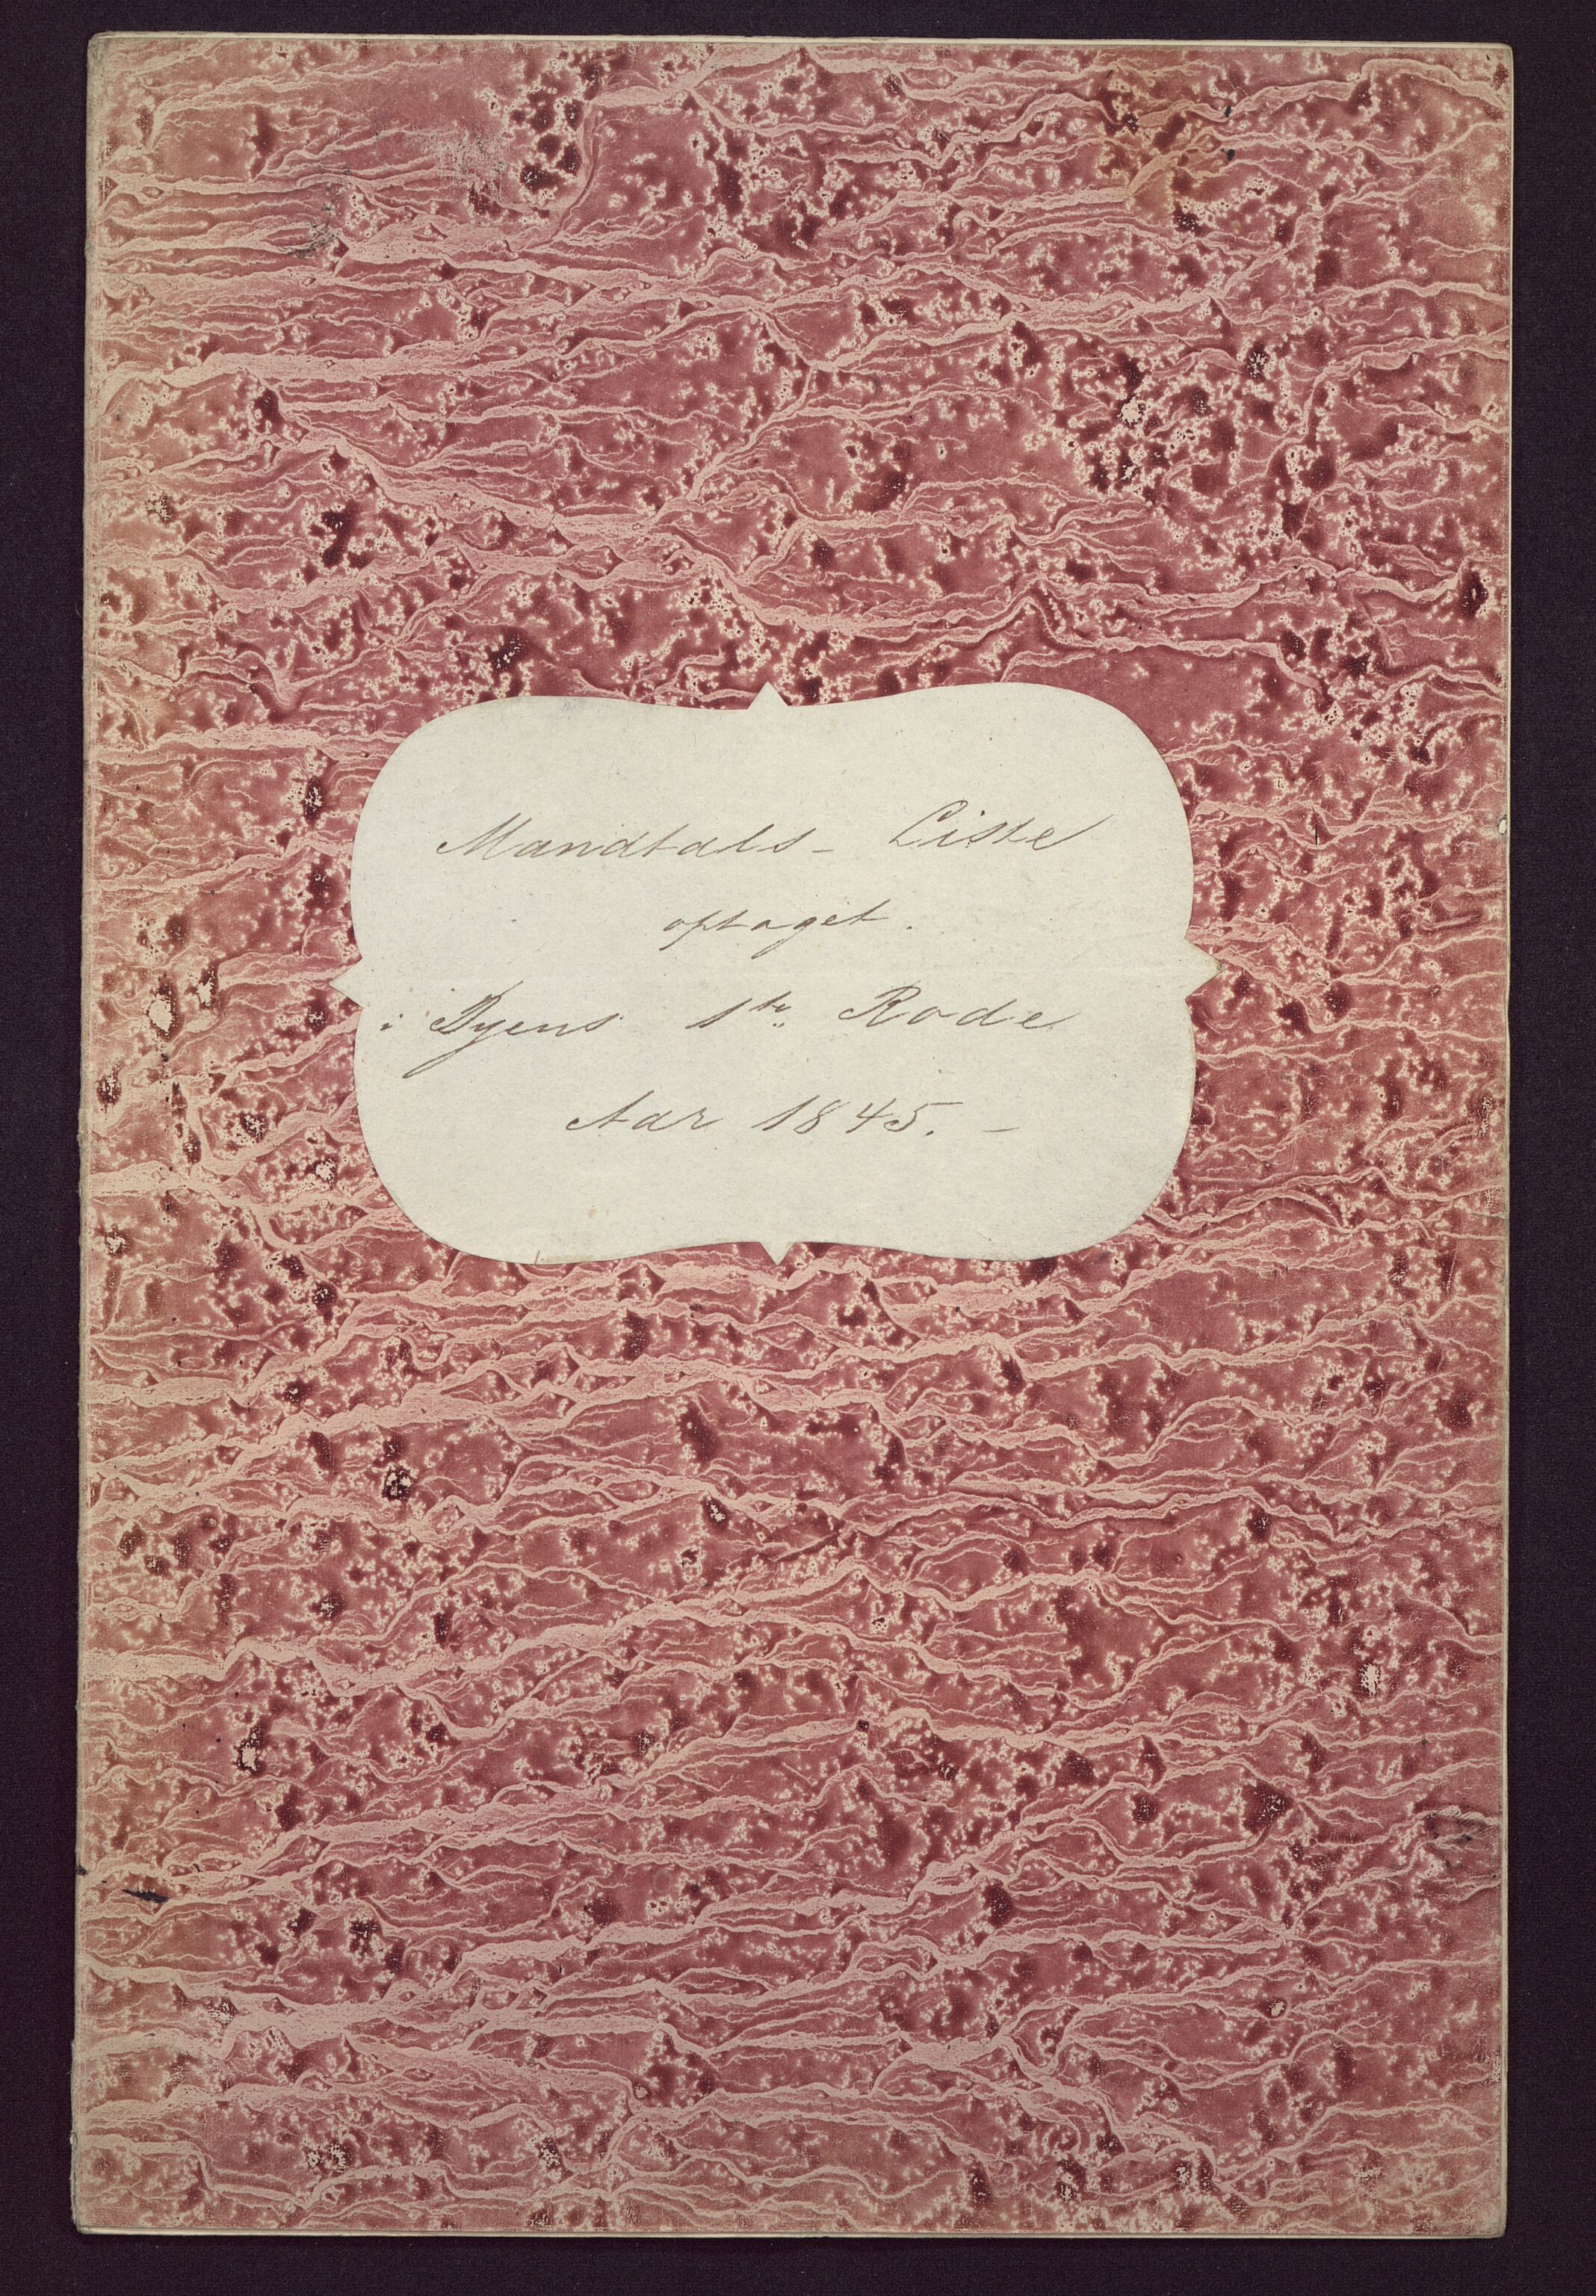 Mandtals- Liste
optaget.
i Byens 1te Rode
Aar 1845. –